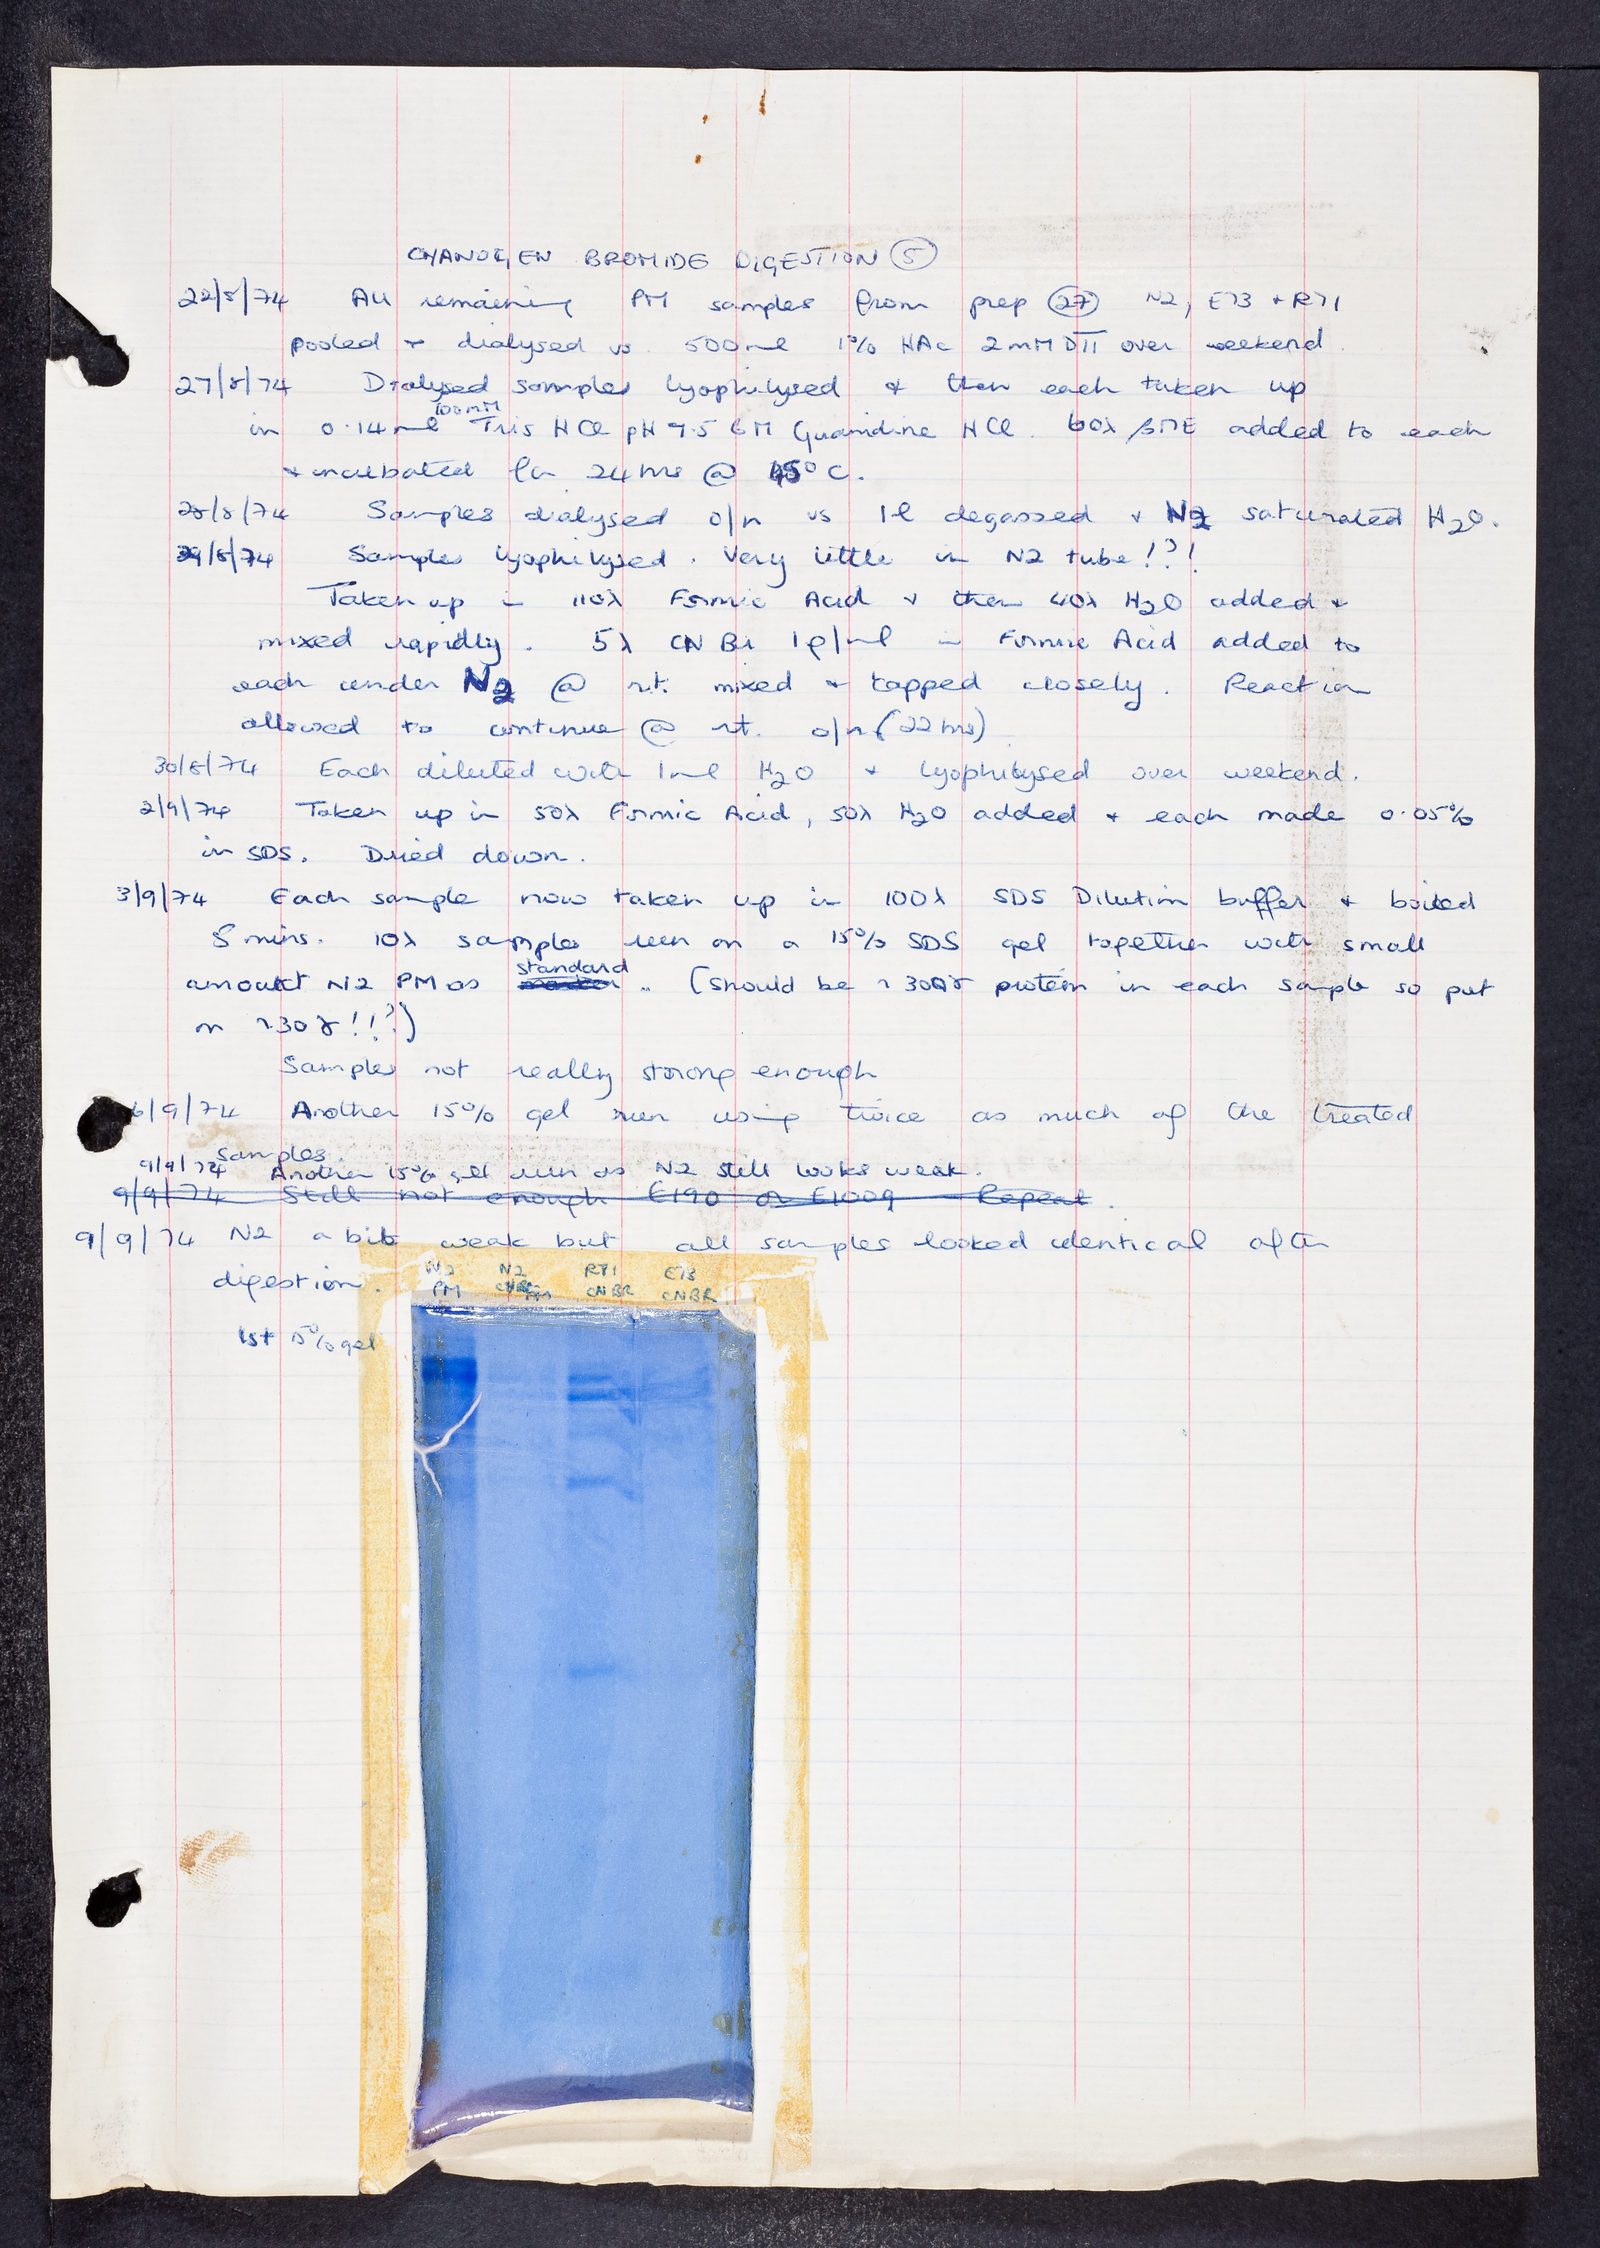 CYANOGEN BROMIDE DIGESTION 5
22/8/74 All remaining PM samples from prep 27 N2, E73 + R71
pooled + dialysed vs. 500ml 1% HAc 2mM DTT over weekend.
27/8/74 Dialysed samples lyophilysed & then each taken up
in 0.14ml 100mM Tris HCl pH 9.5 6M Guanidine HCl. 60λ βME added to each
& incubated for 24hrs @ 45°C.
28/8/74 Samples dialysed o/n vs 1l degassed & N2 saturated H2O.
29/8/74 Samples lyophilysed. Very little in N2 tube!?!
Taken up in 110λ Formic Acid & then 40λ H2O added &
mixed rapidly. 5λ CNBr 1g/ml in Formic Acid added to
each under N2 @ r.t. mixed & capped closely. Reaction
allowed to continue @ r.t. o/n (22hrs)
30/8/74 Each diluted with 1ml H2O & lyophilysed over weekend.
2/9/74 Taken up in 50λ Formic Acid, 50λ H2O added & each made 0.05%
in SDS. Dried down.
3/9/74 Each sample now taken up in 100λ SDS Dilution buffer & boiled
5 mins. 10λ samples run on a 15% SDS gel together with small
amount N2 PM as standard.. (should be ~300γ protein in each sample so put
on ~30γ!!?)
Samples not really strong enough
6/9/74 Another 15% gel run using twice as much of the treated
samples.
9/9/74 Another 15% gel run as N2 still looks weak.
9/9/74 Still not enough E190 or E1009 Repeat.
9/9/74 N2 a bit weak but all samples looked identical after
digestion.
N2 N2 R71 E73
PM CNBR PM CNBR CNBR
1st 15% gel